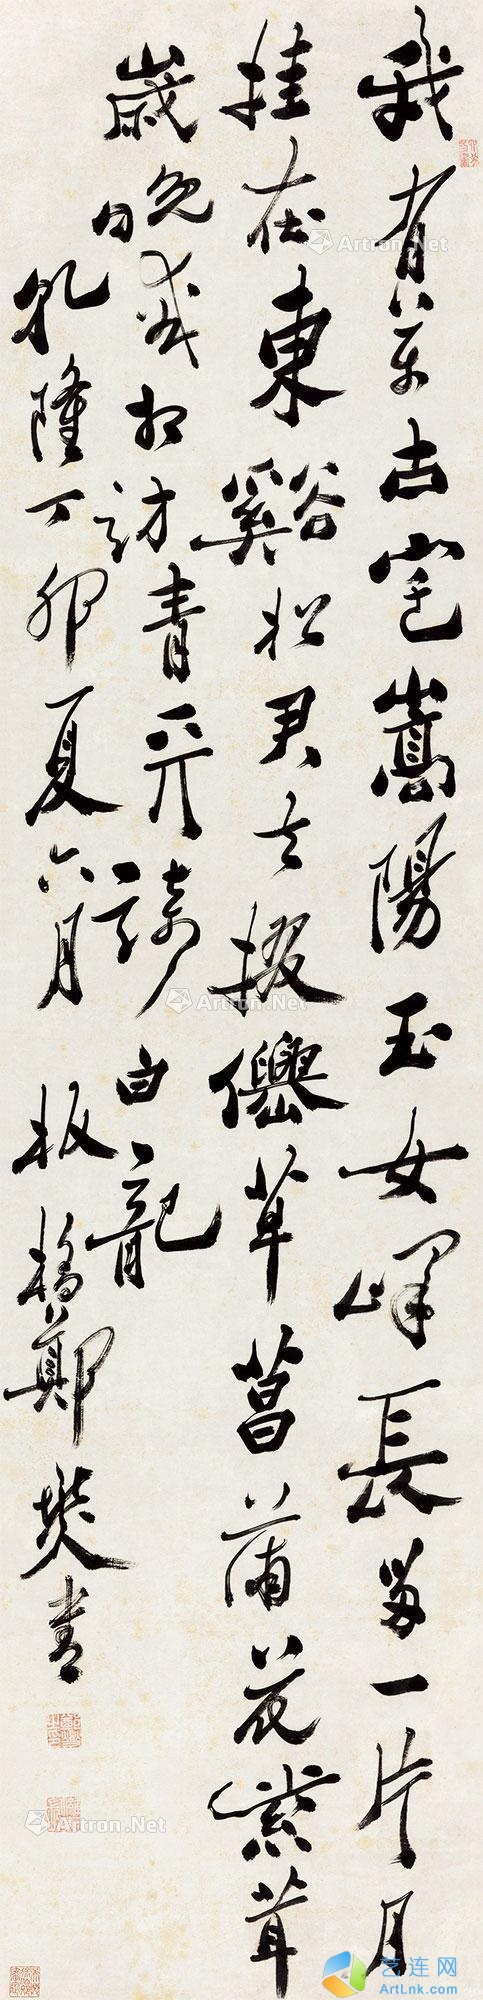 我有萬古宅嵩陽玉女峰長留一片月
挂在東谿松君去掇僊草菖蒲花紫茸
歲晚或相訪青天騎白龍
乾隆丁卯夏六月 板橋鄭燮書
Artron.Net
Artron.Net
Artron.Net
Artron.Net
Artron.Net
艺连网
ArtLnk.com